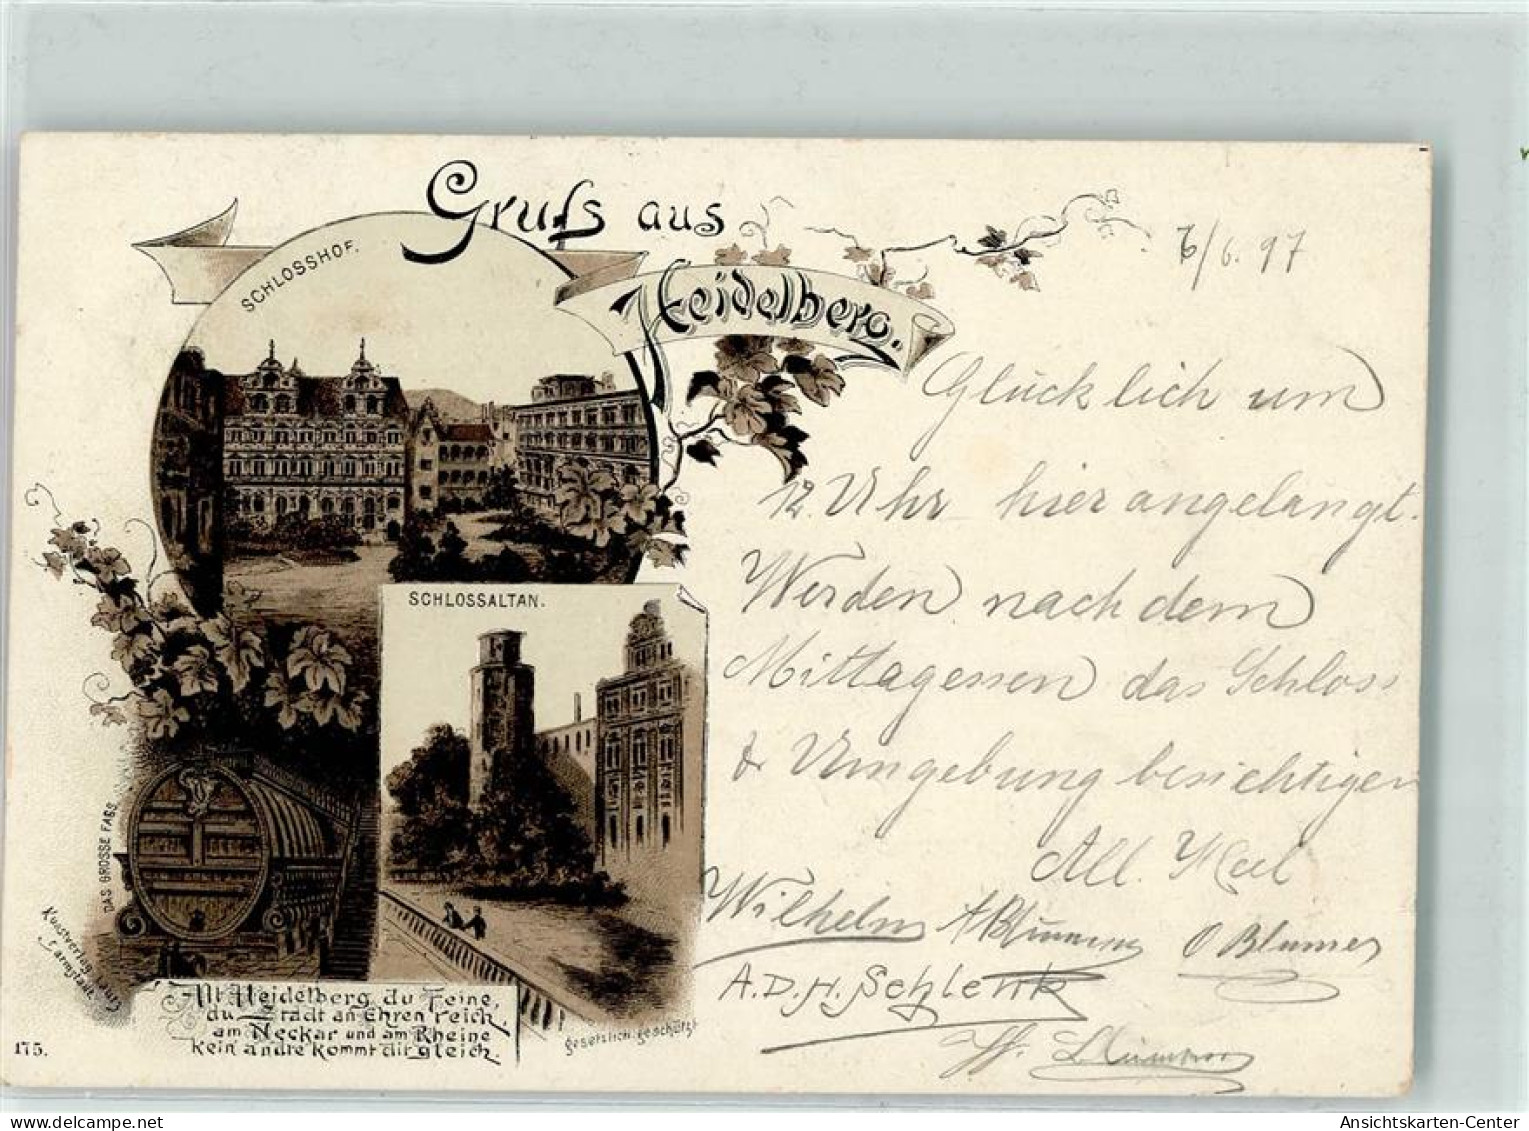 Gruß aus
Heidelberg.
SCHLOSSHOF.
SCHLOSSALTAN.
DAS GROSSE FASS
Kunstverlag
Alt Heidelberg du Feine,
du Stadt an Ehren reich,
am Neckar und am Rheine
kein andre kommt dir gleich.
gesetzlich geschützt
175.
6/6.97
Glücklich um
12 Uhr hier angelangt.
Werden nach dem
Mittagessen das Schloss
& Umgebung besichtigen
All. Heil
Wilhelm
A.D.H. Schlenk
www.oldthing.de
Ansichtskarten-Center